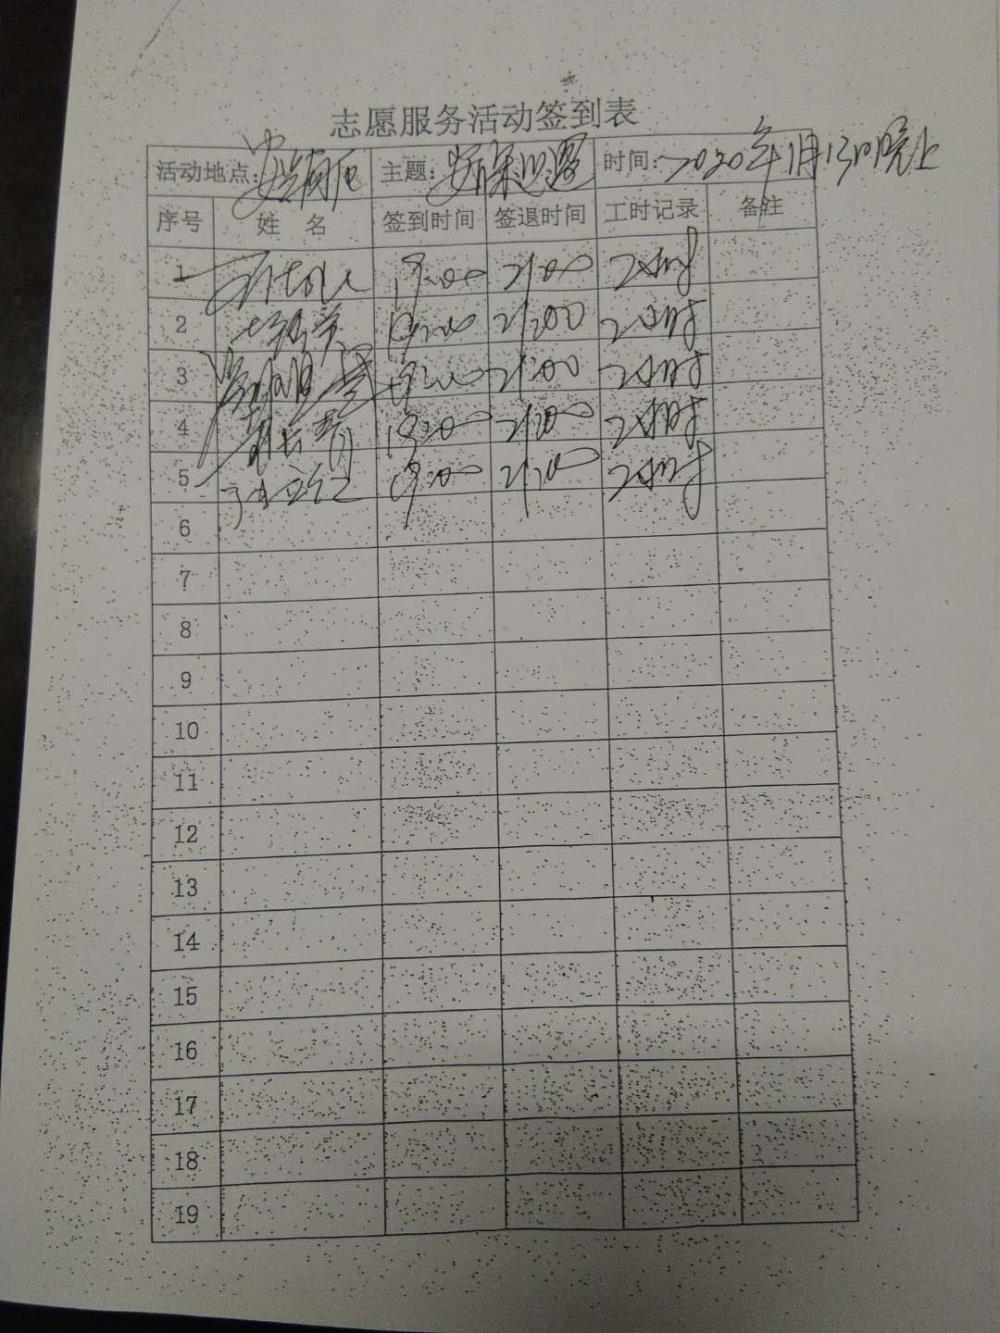 志愿服务活动签到表
活动地点: 主题: 时间: 2020年1月13日晚上
序号 姓 名 签到时间 签退时间 工时记录 备注
1 19:00 21:00 2小时
2 19:00 21:00 2小时
3 19:00 21:00 2小时
4 19:00 21:00 2小时
5 19:00 21:00 2小时
6
7
8
9
10
11
12
13
14
15
16
17
18
19